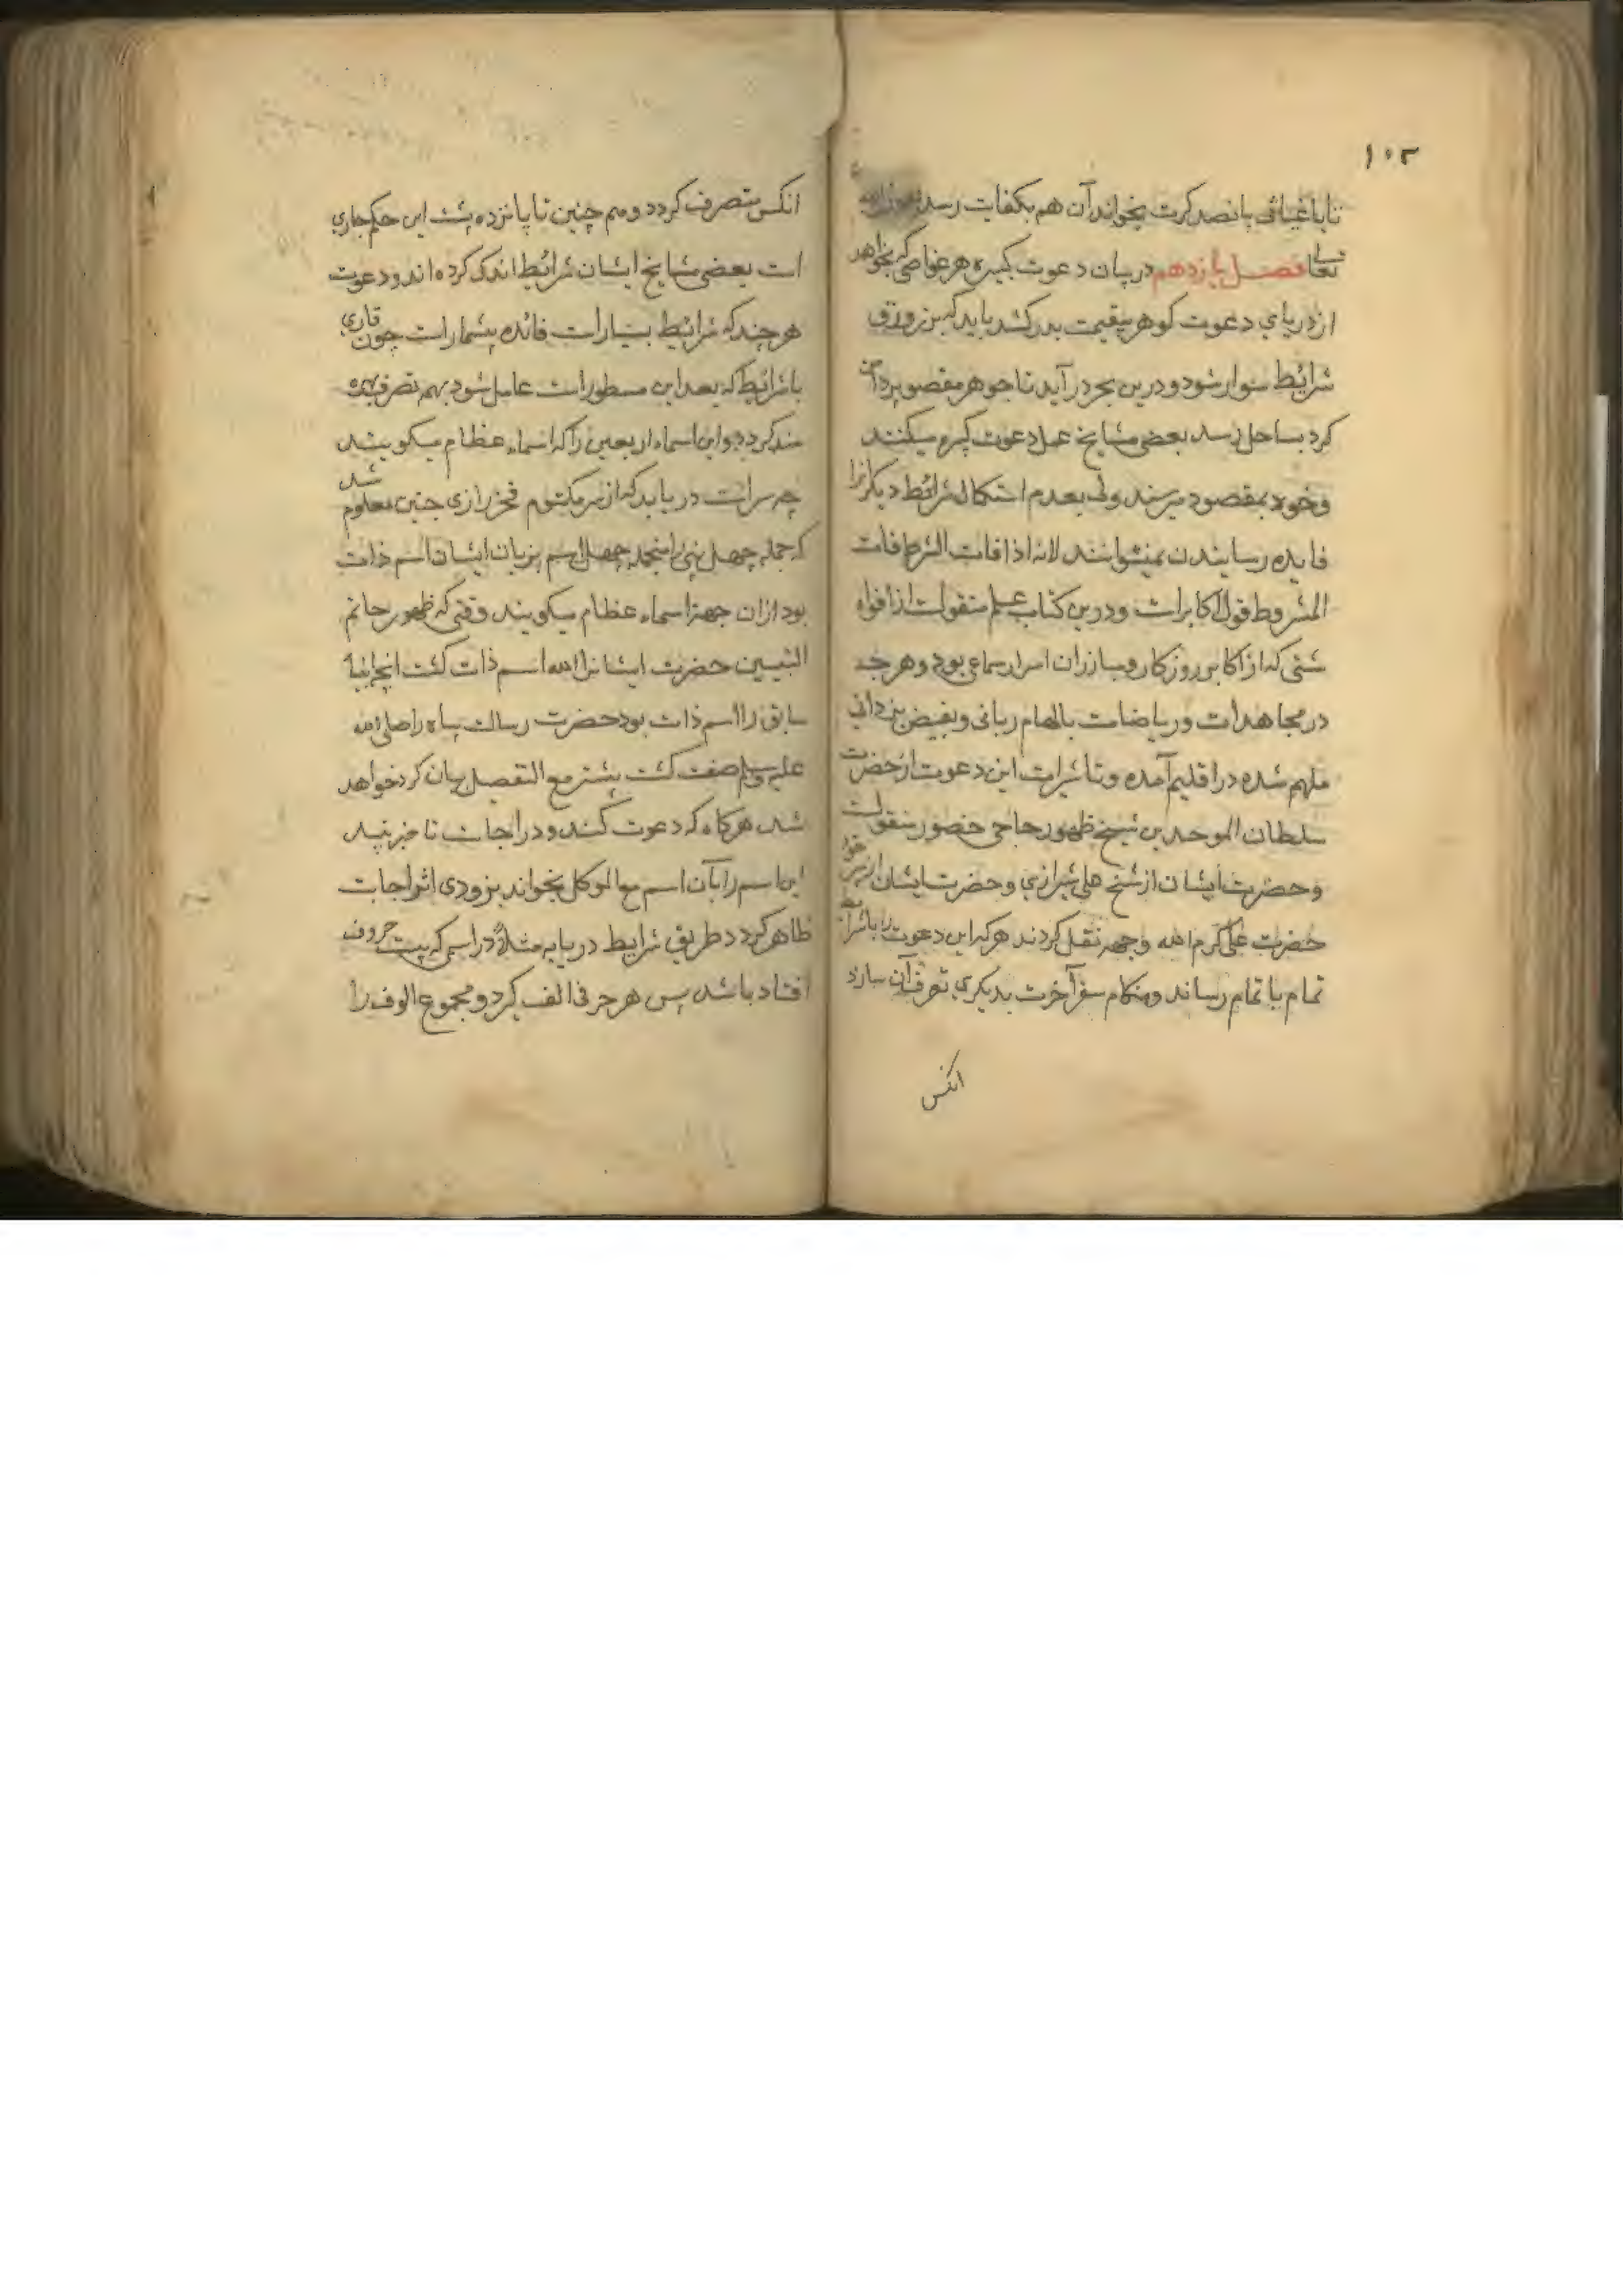 ۱۰۳
تا یا غیاثی پانصد کرت بخواند آن هم بکفایت رسد
تعالی فصل یازدهم در بیان دعوت کبیره هر غواصی که بخواهد
از دریای دعوت کوهر بیقیمت بدر کشد باید که بر زورق
شرائط سوار شود و درین بحر در آید تا جوهر مقصود بردامن
کرد بساحل رسد بعضی مشایخ عمل دعوت کبیره میکنند
و خود بمقصود میرسند ولی بعدم استکمال شرائط دیکرانرا
فایده رسانیدن نمیتوانند لانه اذا فات الشرط فات
المشروط قول اکابر است و درین کتاب علم منقولست از افواه
شتی که از اکابر روزکار و مبارزان اسرار سماعی بود و هرچه
در مجاهدات و ریاضات بالهام ربانی و بفیض یزدانی
ملهم شده در اقلیم آمده و تاثیرات این دعوت از حضرت
سلطان الموحدین شیخ ظهور حاجی حضور منقولست
و حضرت ایشان از شیخ علی شیرازی و حضرت ایشان از
حضرت علی کرم الله وجهه نقل کردند هر که این دعوت را با شرائط
تمام باتمام رساند و هنکام سفر آخرت بدیکری تعرف آن سازد
انکس
انکس متصرف کردد و هم چنین تا پانزده پشت این حکم جاری
است بعضی مشایخ ایشان شرائط اندک کرده اند و دعوت
هر چند که شرائط بسیارست فائده بیشمارست چون قاری
با شرائط که بعد این مسطورات عامل شود بهم تصرف بهره
مند کردد و این اسماء اربعین را که اسماء عظام میکویند
چه سرّاست دریابد که از سر مکتوم فخر رازی چنین معلوم شد
که جمله چهل نبی را منجمله چهل اسم بزبان ایشان اسم ذات
بود ازان جهة اسماء عظام میکویند وقتی که ظهور خاتم
النبیین حضرت ایشانرا الله اسم ذات کشت انچه انبیاء
سابق را اسم ذات بود حضرت رسالت پناه را صلی الله
علیه وسلم صفت کشت پیشتر مع التفصیل بیان کرد خواهد
شد هرکاه که دعوت کنند و در اجابت تا خیر بیند
این اسم را بآن اسم مع الموکل بخواند بزودی اثر اجابت
ظاهر کردد طریق شرایط دریابد مثلاً در اسمی که بیست حروف
افتاد باشد پس هر حرفی الف کیرد و مجموع الوف را